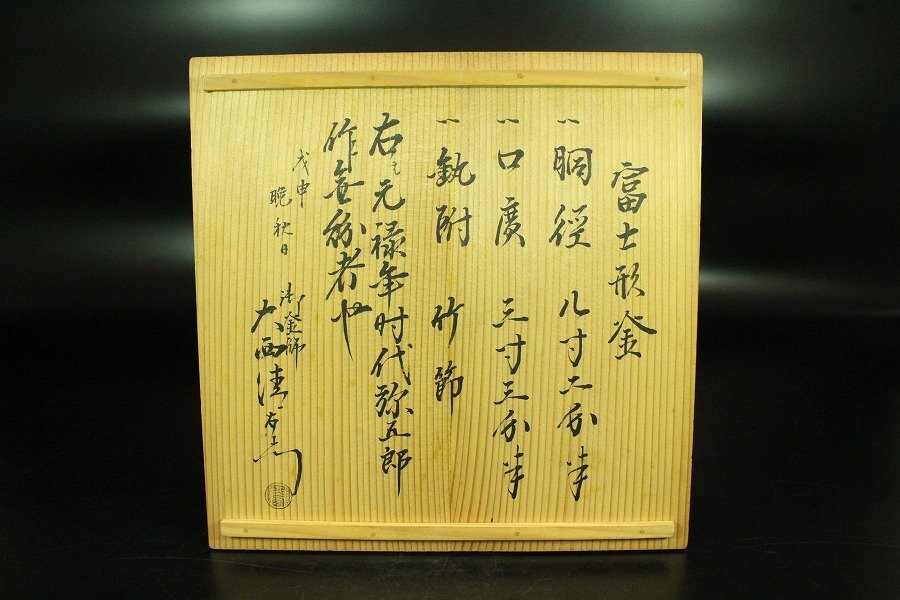 富士形釜
一 胴径 八寸二分半
一 口廣 三寸三分半
一 釻附 竹節
右者元禄年时代弥五郎
作無紛者也
戊申
晩秋日
御釜師
大西清右衛門